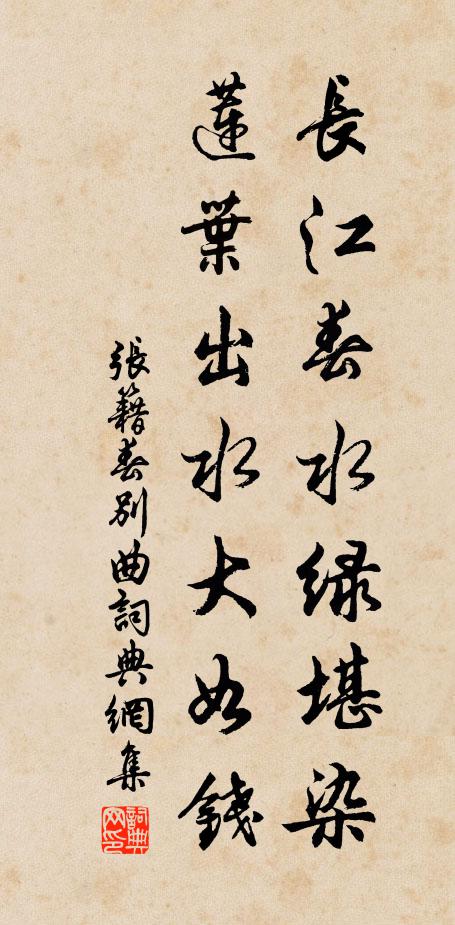 長江春水绿堪染
蓮葉出水大如錢
張籍春别曲詞典網集
詞典网印